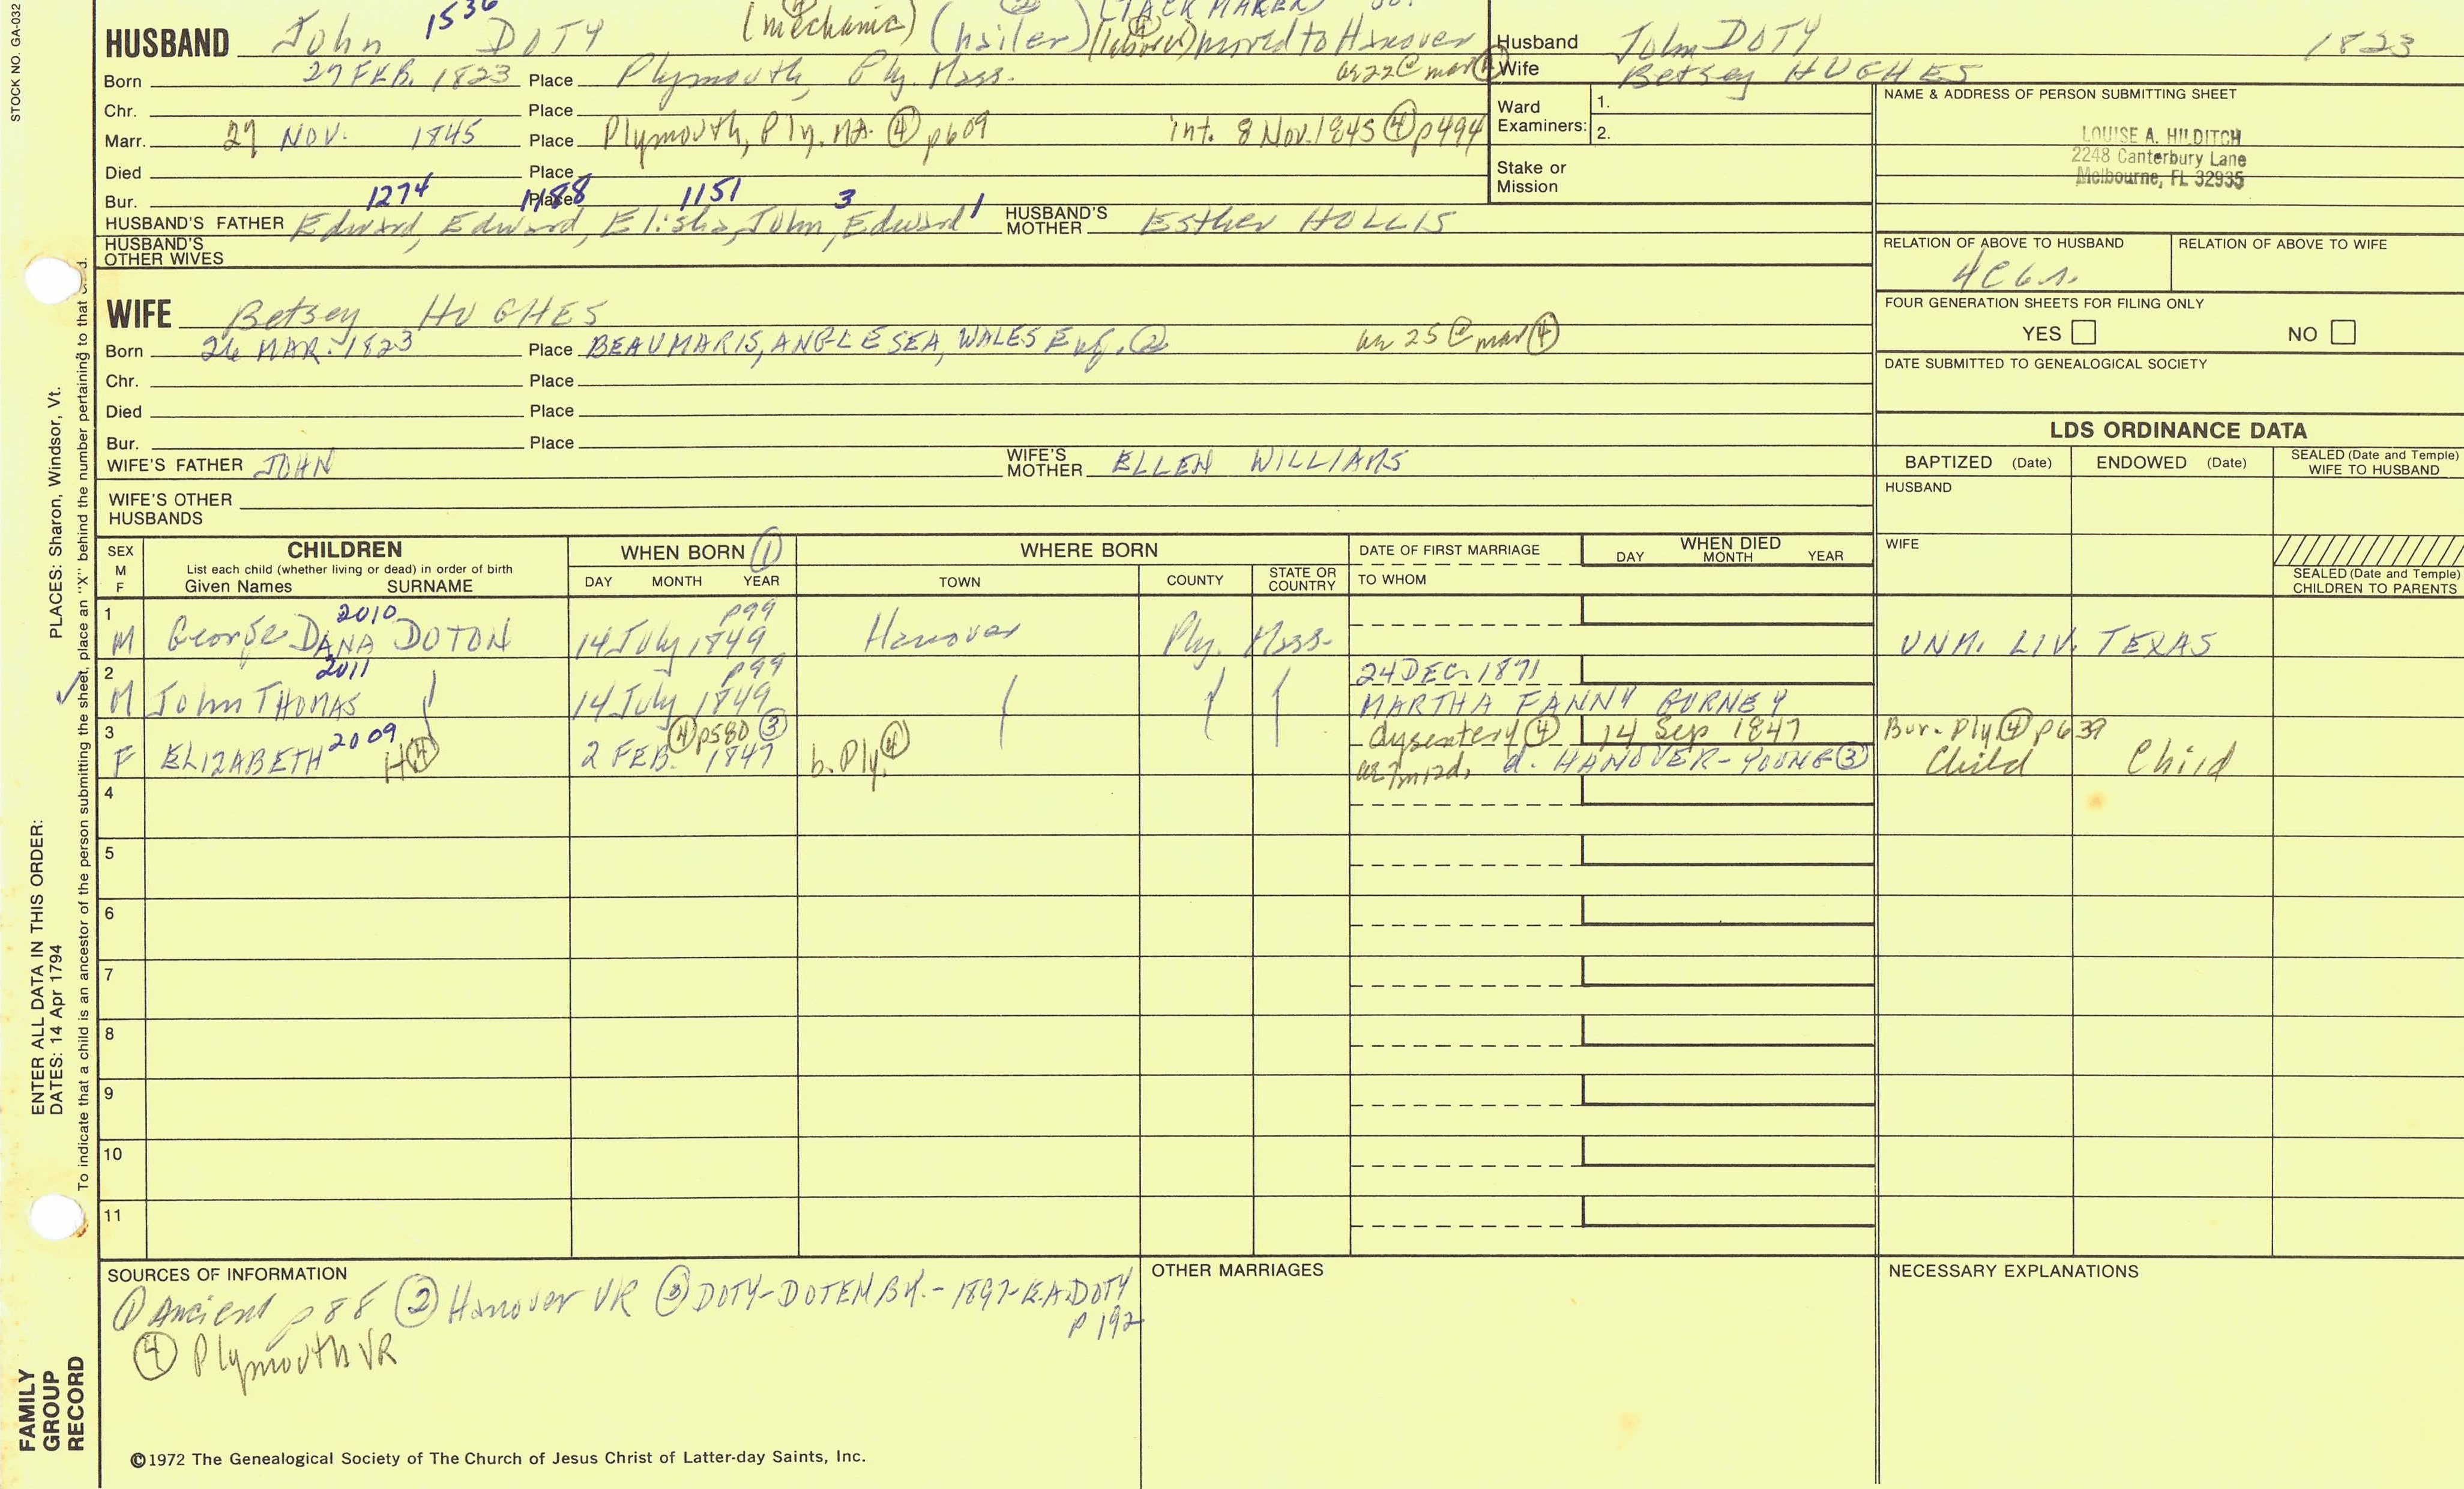 STOCK NO. GA-032
1536 (mechanic) (TACK MAKER)
HUSBAND John DOTY moved to Hanover
Born 27 FEB. 1823 Place Plymouth, Ply. Mass. ae 22 @ mar 4
Chr. Place
Marr. 27 NOV. 1845 Place Plymouth, Ply. MA. 4 p609 int. 8 Nov. 1845 4 p494
Died Place
Bur. Place
1274 1188 1151 3 1
HUSBAND'S FATHER Edward, Edward, Elisha, John, Edward HUSBAND'S MOTHER Esther HOLLIS
HUSBAND'S OTHER WIVES
Husband John DOTY 1823
Wife Betsey HUGHES
Ward Examiners: 1.
2.
Stake or Mission
NAME & ADDRESS OF PERSON SUBMITTING SHEET
LOUISE A. HILDITCH
2248 Canterbury Lane
Melbourne, FL 32935
RELATION OF ABOVE TO HUSBAND RELATION OF ABOVE TO WIFE
4C6r.
FOUR GENERATION SHEETS FOR FILING ONLY
YES NO
DATE SUBMITTED TO GENEALOGICAL SOCIETY
WIFE Betsey HUGHES
Born 26 MAR. 1823 Place BEAUMARIS, ANGLESEA, WALES Eng. 2 ae 25 @ mar 4
Chr. Place
Died Place
Bur. Place
WIFE'S FATHER JOHN WIFE'S MOTHER ELLEN WILLIAMS
WIFE'S OTHER HUSBANDS
LDS ORDINANCE DATA
BAPTIZED (Date) ENDOWED (Date) SEALED (Date and Temple) WIFE TO HUSBAND
HUSBAND
WIFE
SEALED (Date and Temple) CHILDREN TO PARENTS
SEX M F
CHILDREN
List each child (whether living or dead) in order of birth
Given Names SURNAME
WHEN BORN 1
DAY MONTH YEAR
WHERE BORN
TOWN COUNTY STATE OR COUNTRY
DATE OF FIRST MARRIAGE
TO WHOM
WHEN DIED
DAY MONTH YEAR
1 2010 p99
M George DANA DOTON 14 July 1849 Hanover Ply. Mass. UNM. LIV. TEXAS
2 2011 p99 24 DEC. 1871
M John THOMAS 14 July 1849 MARTHA FANNY BURNEY
3 2009 4 p580 3 dysentery 4 14 Sep 1847 Bur. Ply 4 p639
F ELIZABETH H 4 2 FEB. 1847 b. Ply 4 ae 7m12d, d. HANOVER-YOUNG 3 Child Child
4
5
6
7
8
9
10
11
SOURCES OF INFORMATION
1 Ancient p88 2 Hanover VR 3 DOTY-DOTEN BK.-1897-E.A.DOTY
p 192
4 Plymouth VR
OTHER MARRIAGES
NECESSARY EXPLANATIONS
©1972 The Genealogical Society of The Church of Jesus Christ of Latter-day Saints, Inc.
PLACES: Sharon, Windsor, Vt.
ENTER ALL DATA IN THIS ORDER:
DATES: 14 Apr 1794
To indicate that a child is an ancestor of the person submitting the sheet, place an "X" behind the number pertaining to that
FAMILY
GROUP
RECORD